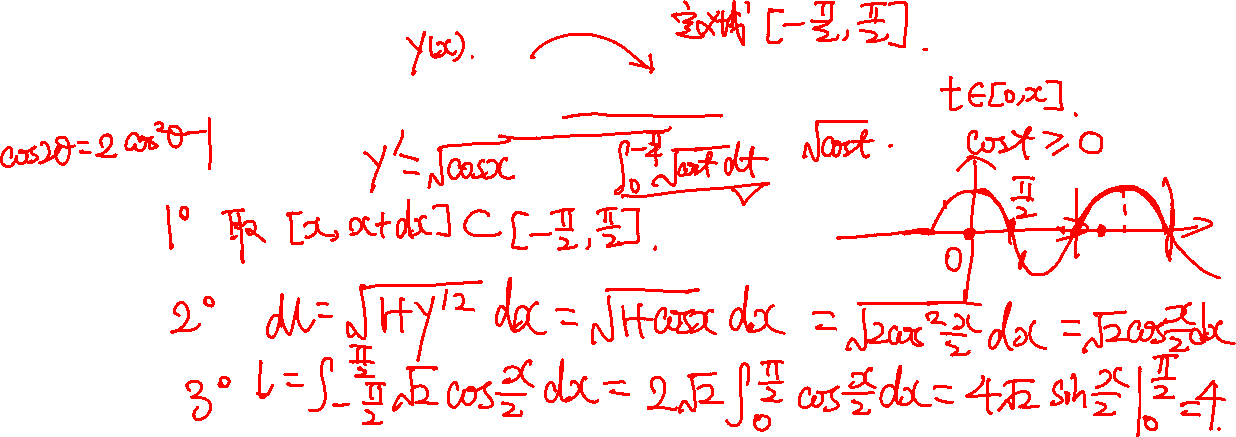 y(x). 定义域 [-π/2, π/2].
t∈[0,x].
cos2θ=2cos²θ-1 y'=√cosx ∫₀^{-π/4} √cost dt √cost. cost≥0
π/2
1° 取 [x, x+dx]⊂[-π/2, π/2].
0
2° dl=√(1+y'²) dx=√(1+cosx) dx =√(2cos²x/2) dx=√2cos x/2 dx
3° l=∫_{-π/2}^{π/2} √2 cos x/2 dx=2√2∫₀^{π/2} cos x/2 dx=4√2 sin x/2 |₀^{π/2}=4.